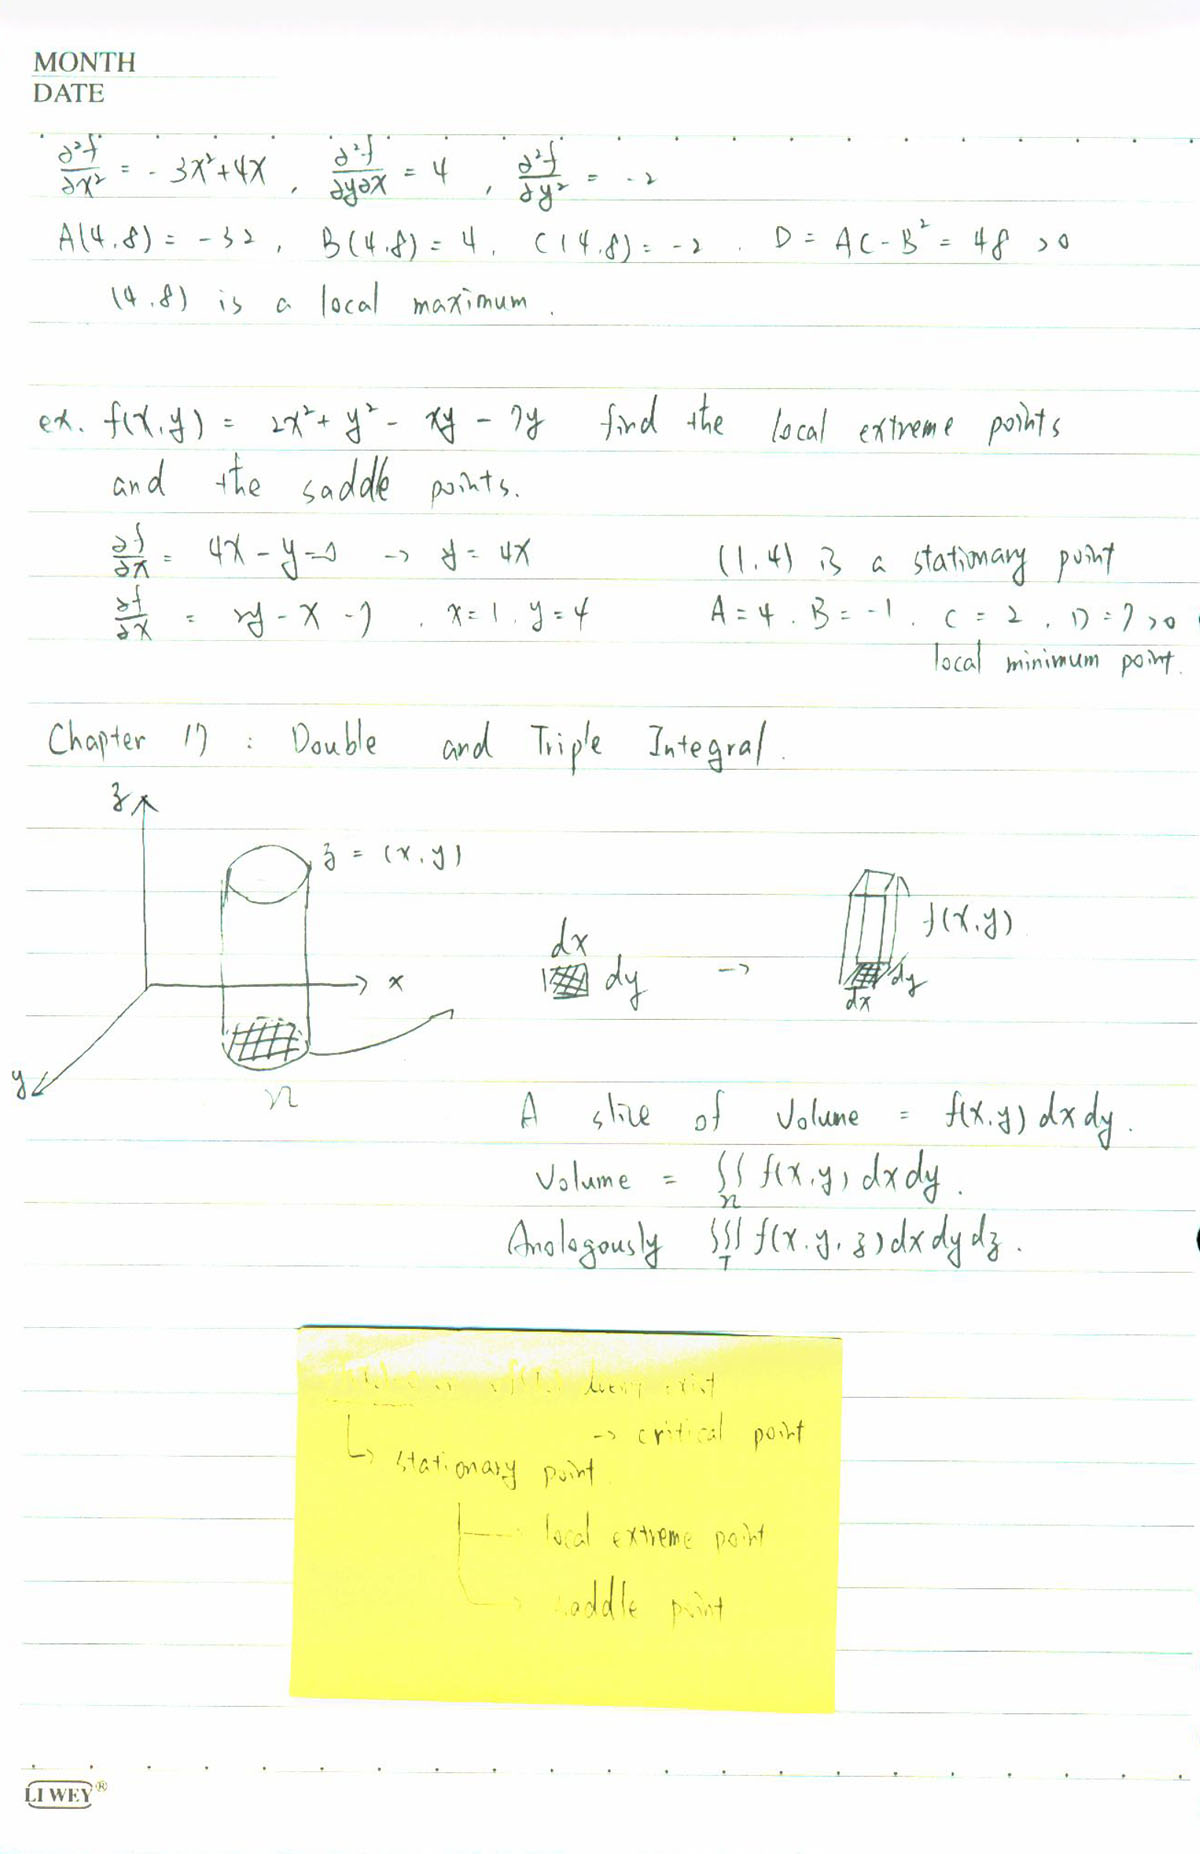 MONTH
DATE
∂²f/∂x² = -3x²+4x , ∂²f/∂y∂x = 4 , ∂²f/∂y² = -2
A(4,8) = -32, B(4,8) = 4, C(4,8) = -2 . D = AC - B² = 48 >0
(4,8) is a local maximum.
ex. f(x,y) = 2x² + y² - xy - 7y find the local extreme points
and the saddle points.
∂f/∂x = 4x - y=0 → y = 4x (1,4) is a stationary point
∂f/∂x = 2y - x - 7 , x=1, y=4 A=4, B=-1, C=2, D=7>0
local minimum point.
Chapter 17 : Double and Triple Integral.
z
z = (x,y)
f(x,y)
dx
dy
→
x
dy
dx
y
Ω
A slice of Volume = f(x,y) dx dy.
Volume = ∬Ω f(x,y) dx dy.
Anologously ∭T f(x,y,z) dx dy dz.
exist
→ critical point
↳ stationary point.
local extreme point
saddle point
LI WEY®